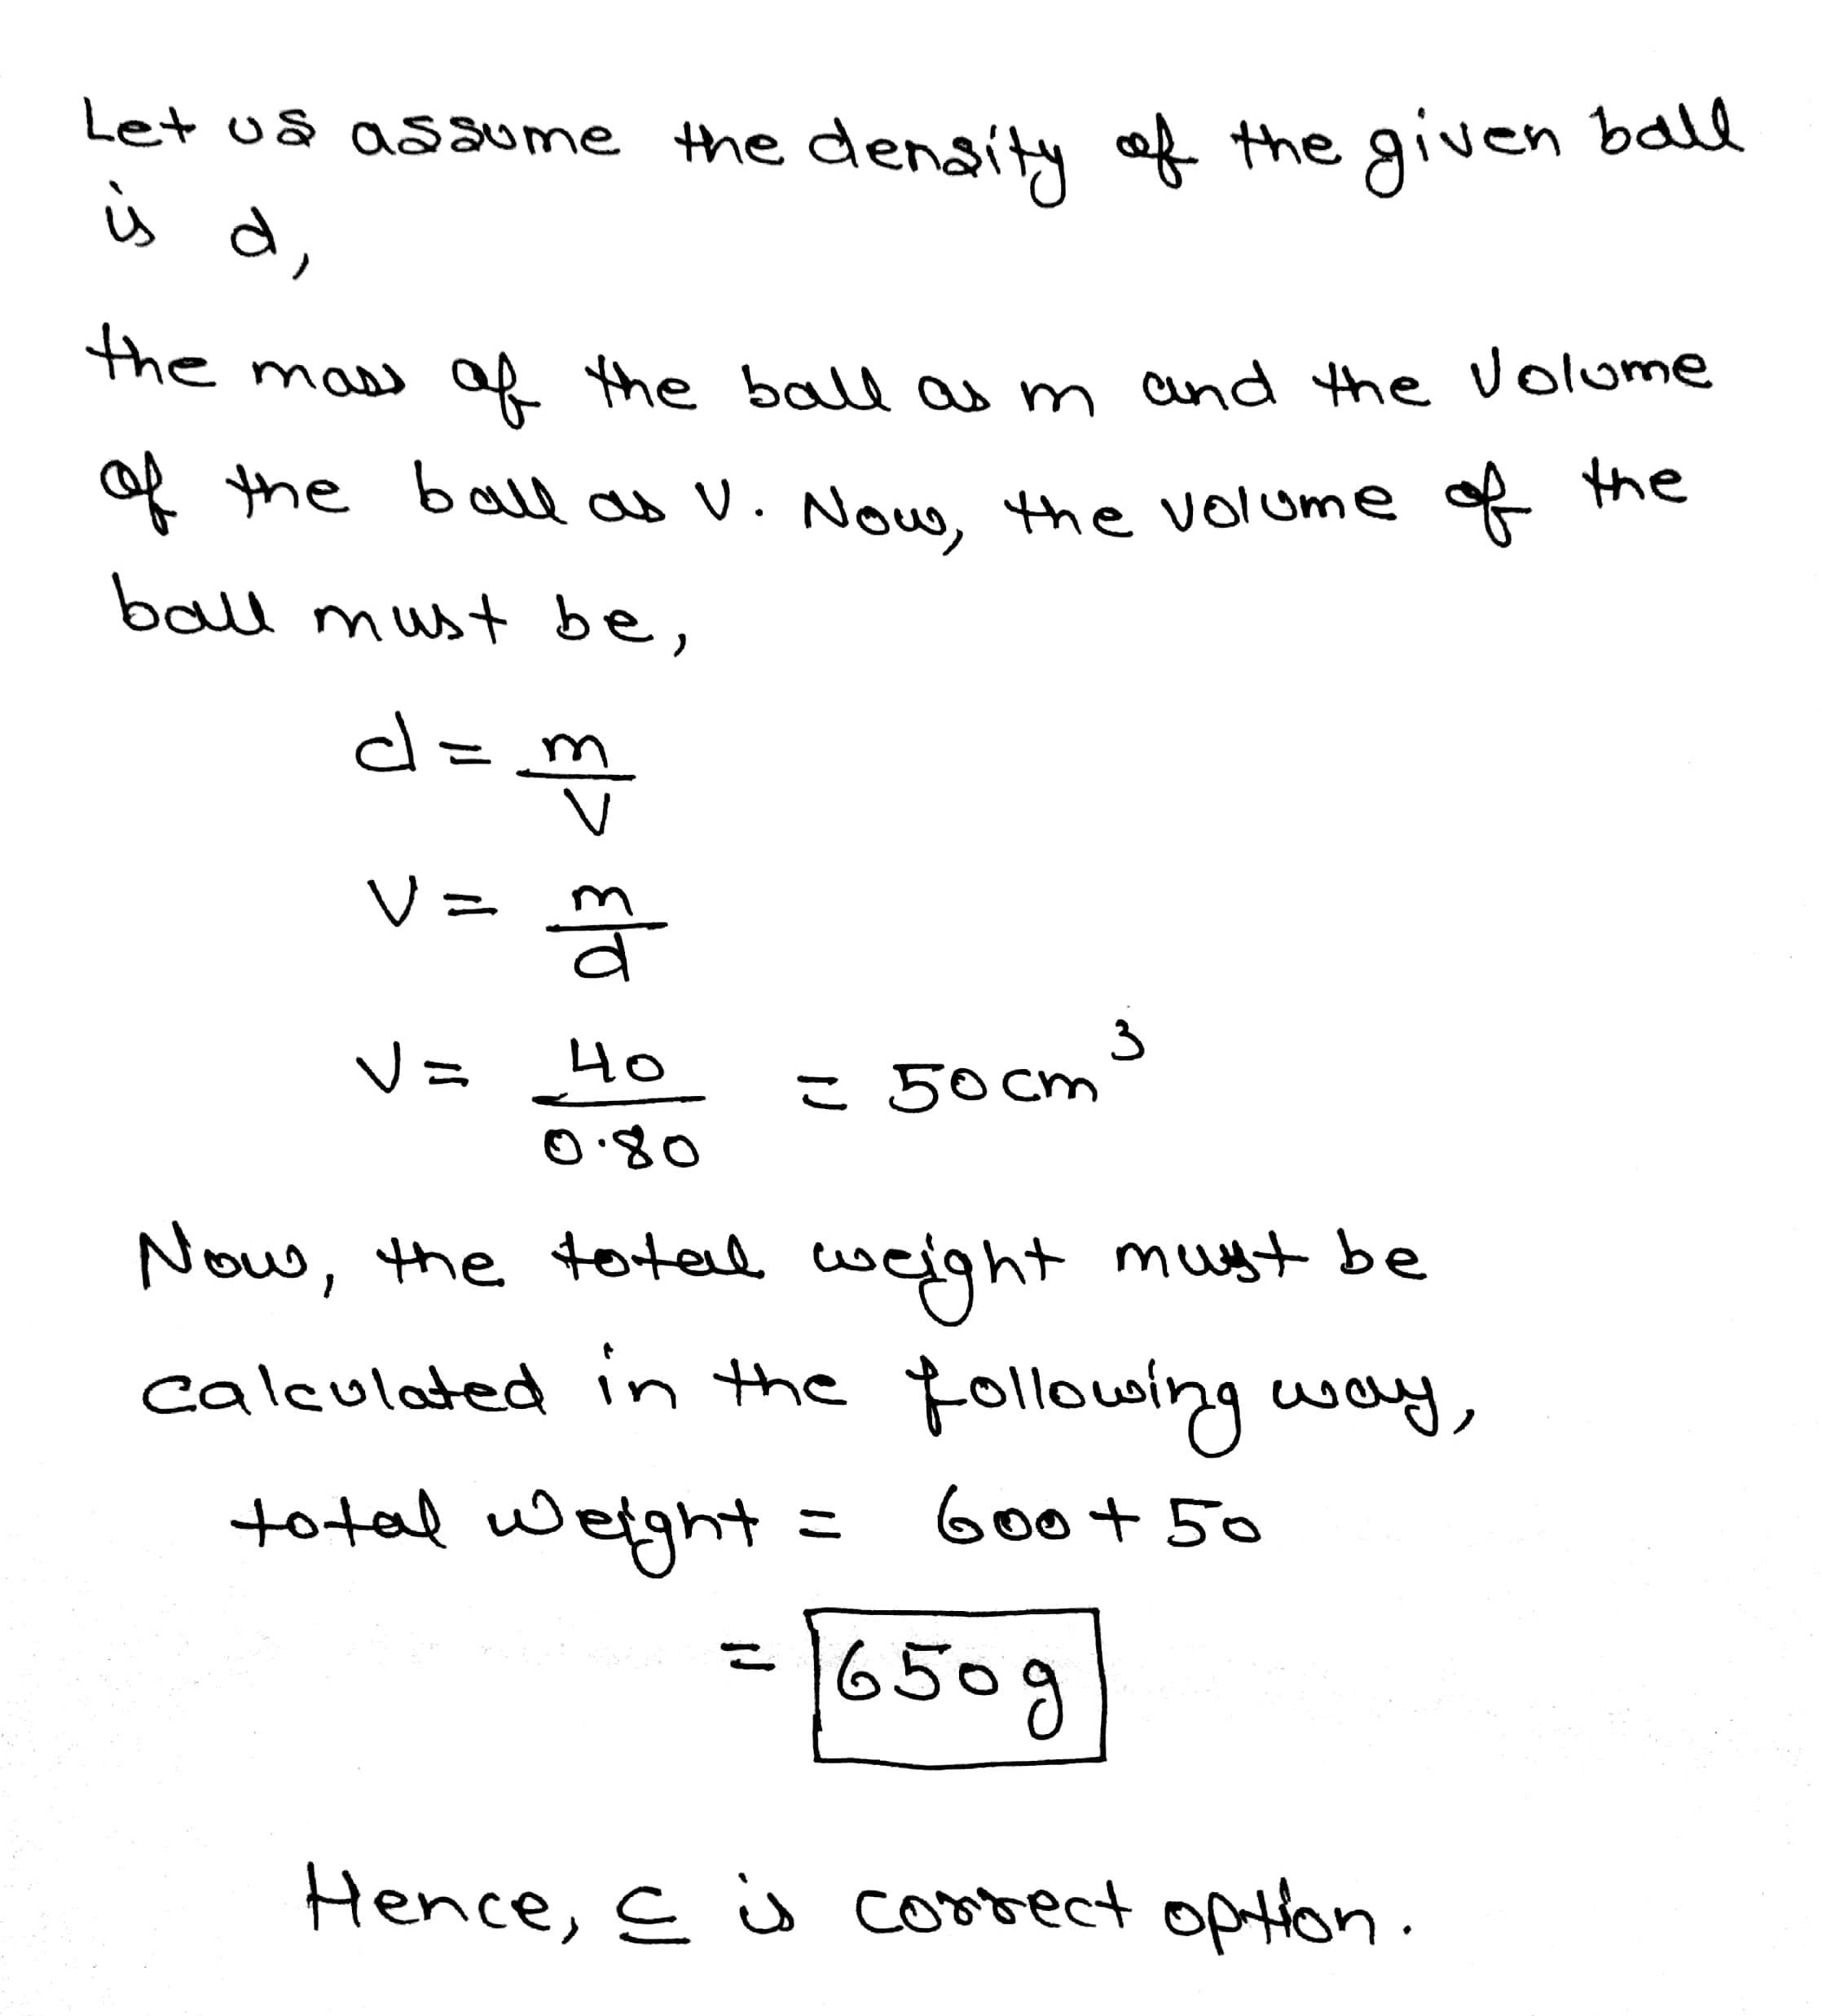 Let us assume the density of the given ball
is d,
the mass of the ball as m and the volume
of the ball as v. Now, the volume of the
ball must be,
d = m/V
V = m/d
V = 40/0.80 = 50 cm³
Now, the total weight must be
calculated in the following way,
total weight = 600 + 50
= 650g
Hence, c is correct option.